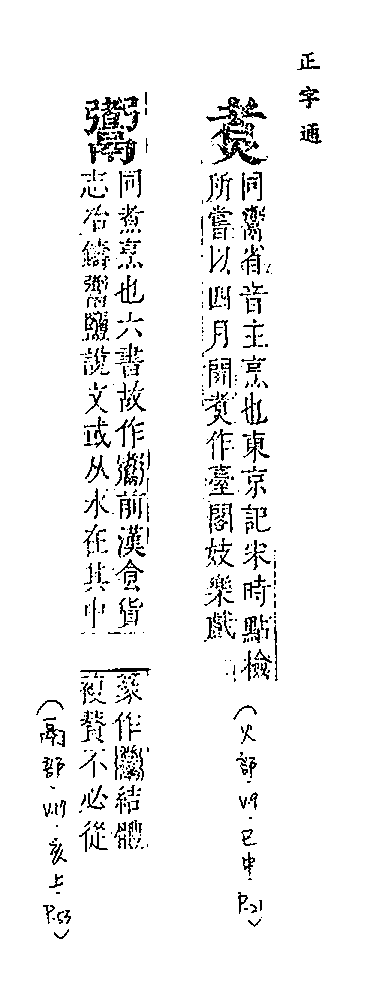 正字通
煑
同䰞省音主烹也東京記宋時點檢
所嘗以四月開煑作臺閣妓樂戲
(火部·V.9·巳中·P.21)
䰞
同煮烹也六書故作䰞前漢食貨
志冶鑄䰞鹽說文或从水在其中
篆作䰞結體
複贅不必從
(鬲部·V.17·亥上·P.53)